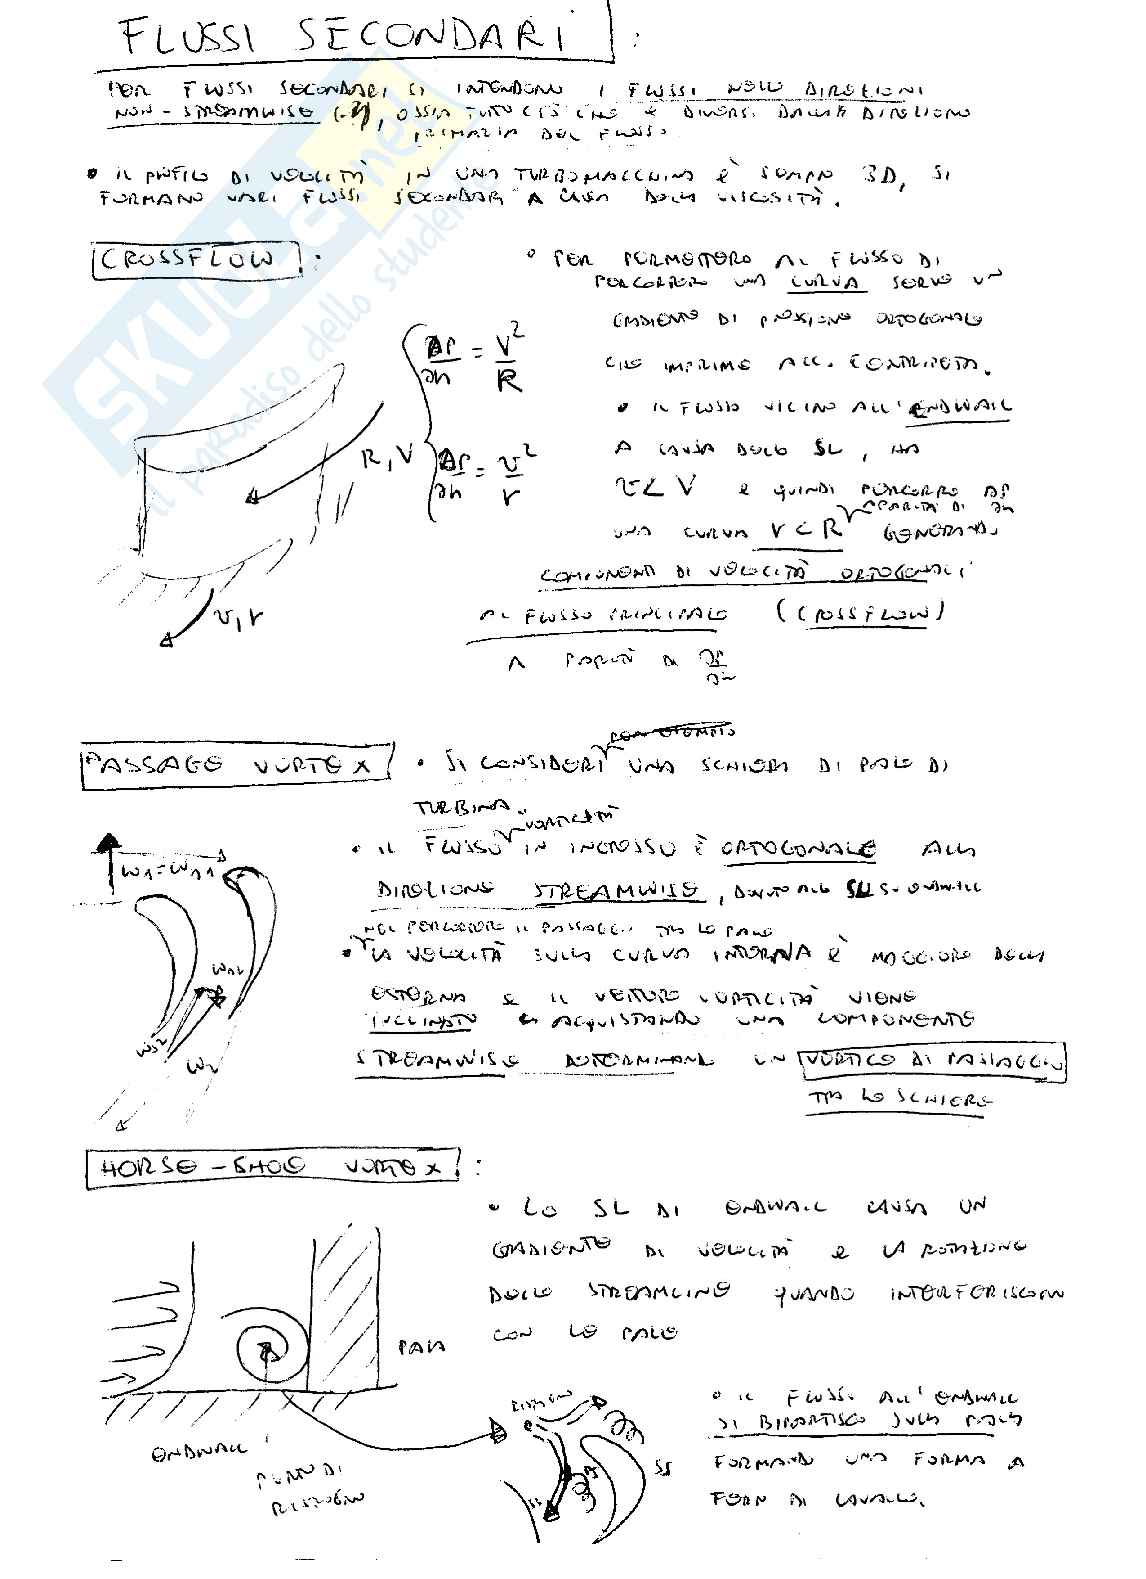 FLUSSI SECONDARI :
PER FLUSSI SECONDARI SI INTENDONO I FLUSSI NELLE DIREZIONI
NON-STREAMWISE, OSSIA TUTTO CIÒ CHE È DIVERSO DALLA DIREZIONE
PRIMARIA DEL FLUSSO.
• IL PROFILO DI VELOCITÀ IN UNA TURBOMACCHINA È SEMPRE 3D, SI
FORMANO VARI FLUSSI SECONDARI A CAUSA DELLA VISCOSITÀ.
CROSSFLOW :
• PER PERMETTERE AL FLUSSO DI
PERCORRERE UNA CURVA SERVE UN
GRADIENTE DI PRESSIONE ORTOGONALE
CHE IMPRIME ACC. CENTRIPETA.
∂P/∂n = V²/R
R, V
∂P/∂n = v²/r
v, r
• IL FLUSSO VICINO ALL'ENDWALL
A CAUSA DELLO SL, HA
v < V E QUINDI PERCORRE
A PARITÀ DI ∂P/∂n
UNA CURVA r < R GENERANDO
COMPONENTI DI VELOCITÀ ORTOGONALI
AL FLUSSO PRINCIPALE (CROSSFLOW)
A PARITÀ DI ∂P/∂n
PASSAGE VORTEX
PER ESEMPIO
• SI CONSIDERI UNA SCHIERA DI PALE DI
TURBINA.
VORTICITÀ
• IL FLUSSO IN INGRESSO È ORTOGONALE ALLA
DIREZIONE STREAMWISE, DOVUTO ALLO SL SU ENDWALL
NEL PERCORRERE IL PASSAGGIO TRA LE PALE
• LA VELOCITÀ SULLA CURVA INTERNA È MAGGIORE DELLA
ESTERNA E IL VETTORE VORTICITÀ VIENE
INCLINATO ACQUISTANDO UNA COMPONENTE
STREAMWISE DETERMINANDO UN VORTICE DI PASSAGGIO
TRA LE SCHIERE
ω1=ωn1
ωn2
ωs2
ω2
HORSE-SHOE VORTEX :
• LO SL DI ENDWALL CAUSA UN
GRADIENTE DI VELOCITÀ E LA ROTAZIONE
DELLE STREAMLINE QUANDO INTERFERISCONO
CON LE PALE
PALA
ENDWALL
PUNTO DI
RISTAGNO
RISTAGNO
SS
PS
SS
• IL FLUSSO ALL'ENDWALL
SI BIPARTISCE SULLA PALA
FORMANDO UNA FORMA A
FERRO DI CAVALLO.
SKUOLA.net
il paradiso dello studente